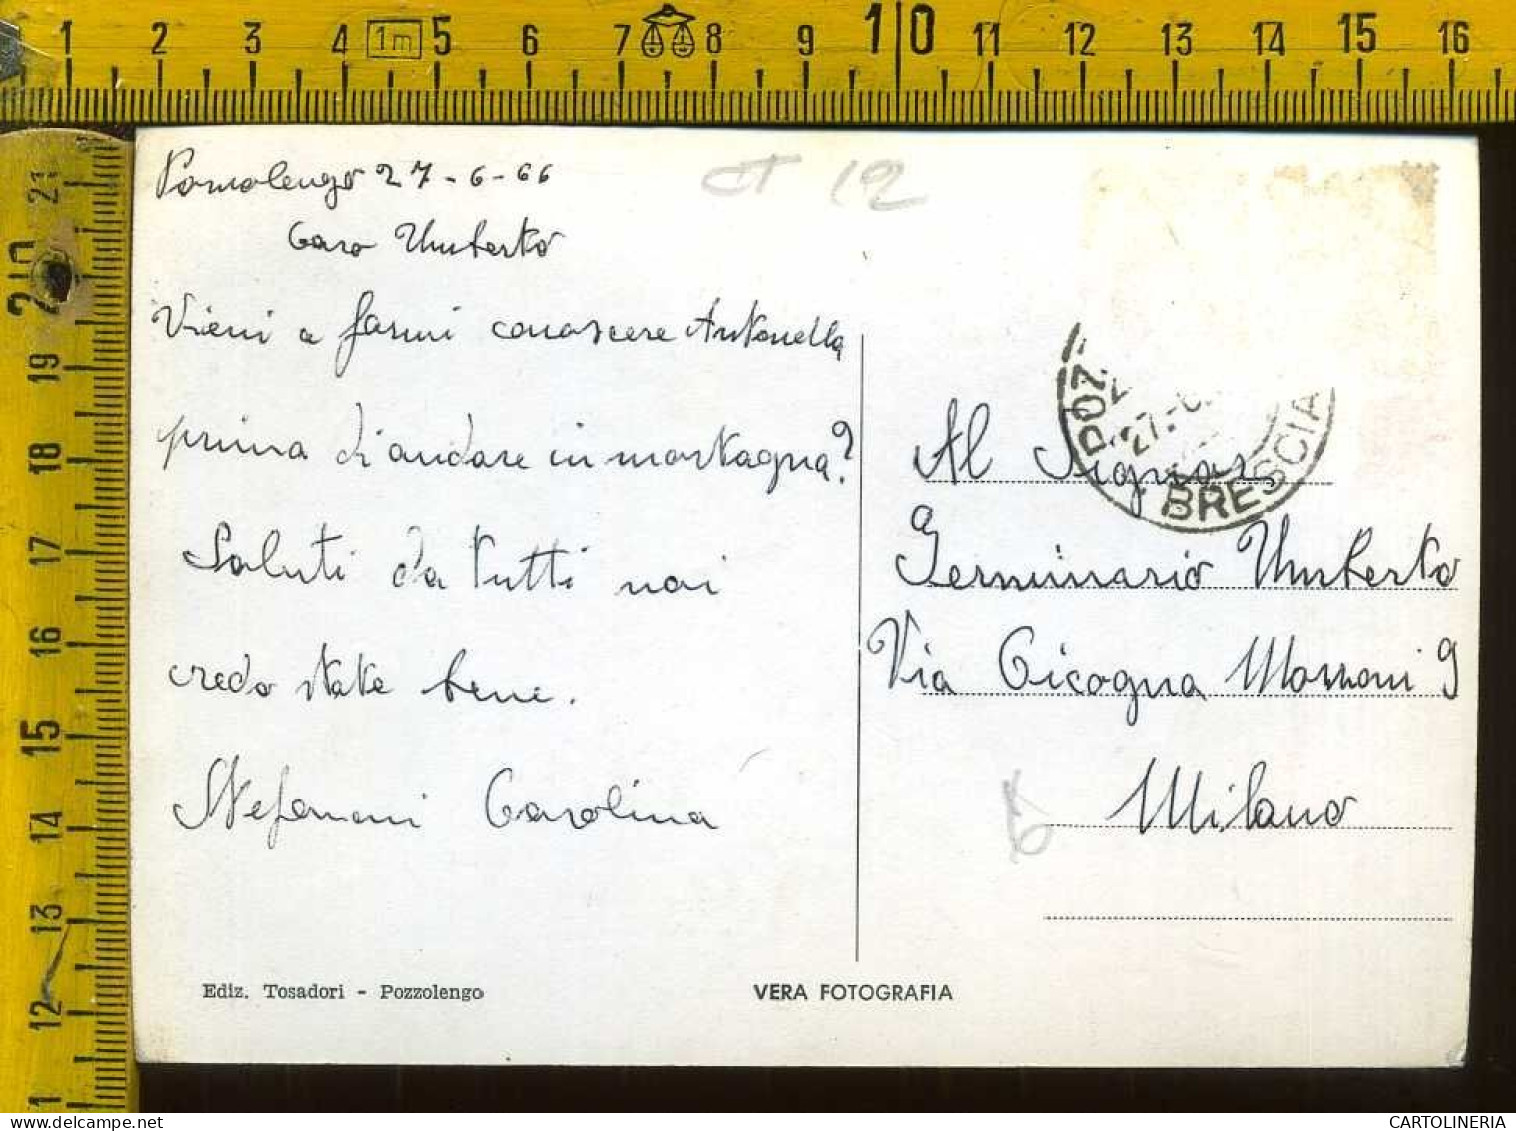 1 2 3 4 1m 5 6 7 8 9 10 11 12 13 14 15 16
21
20
19
18
17
16
15
14
13
12
Pozzolengo 27-6-66
CT 12
Caro Umberto
Vieni a farmi conoscere Antonella
prima di andare in montagna?
Saluti da tutti noi
credo state bene.
Stefanoni Carolina
POZ
27-6
BRESCIA
Al Signor
Germinario Umberto
Via Cicogna Mozzoni 9
Milano
Ediz. Tosadori - Pozzolengo
VERA FOTOGRAFIA
CARTOLINERIA